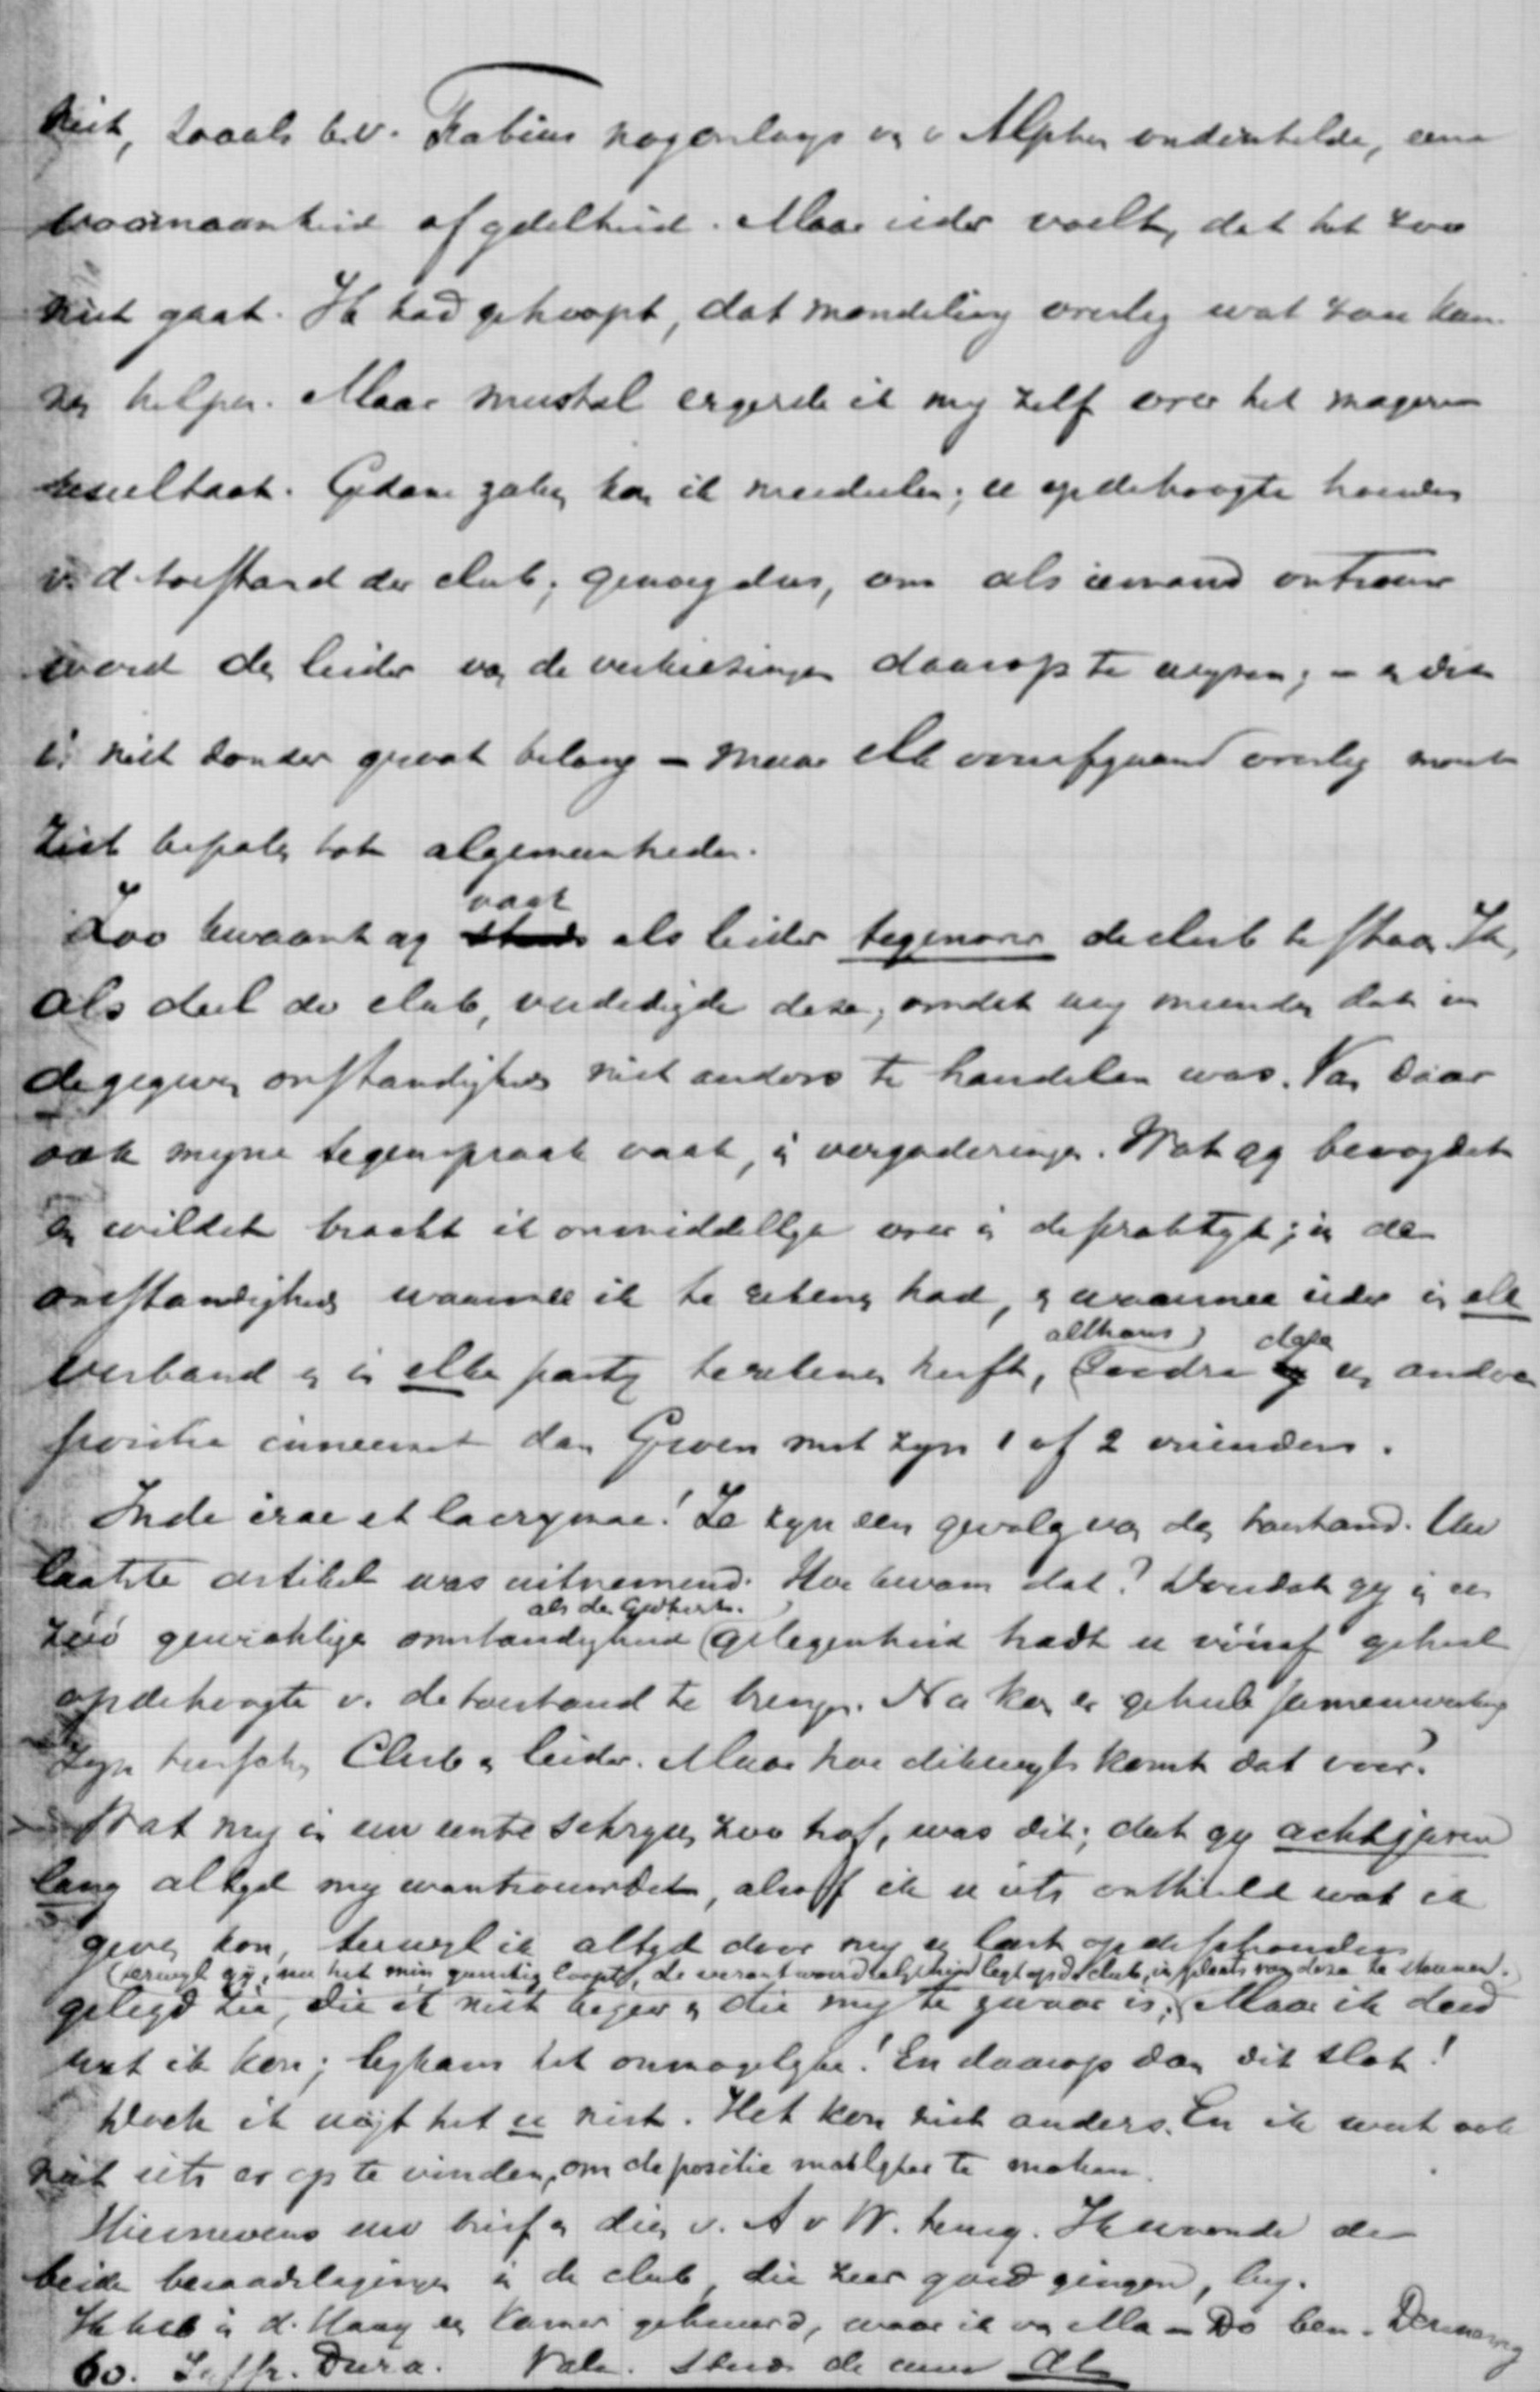 niet, zooals b.v. Fabius nog onlangs van v Alphen onderstelde, eene
voornaamheid of ydelheid. Maar ieder voelt, dat het zoo
niet gaat. Ik had gehoopt, dat mondeling overleg wat zou kun-
nen helpen. Maar meestal ergerde ik my zelf over het magere
resultaat. Gedane zaken kon ik meedeelen; u op de hoogte houden
v. d. toestand der club; genoeg dus, om als iemand ontrouw
werd den leider van de verkiezingen daarop te wyzen; - en dit
is niet zonder groot belang - maar elk voorafgaand overleg moest
zich bepalen tot algemeenheden.
Zoo kwaamt gy vaak als leider tegenover de club te staan. Ik,
als deel der club, verdedigde deze, omdat wy meenden dat in
de gegeven omstandigheden niet anders te handelen was. Van daar
ook myne tegenspraak vaak, in vergaderingen. Wat gy bevoegdet
en wildet bracht ik onmiddellyk over in de praktyk; in de
omstandigheden waarmee ik te rekenen had, en waarmee ieder in elk
verband en in elke party te rekenen heeft, (althans) zoodra deze een andere
positie inneemt dan Groen met zyn 1 of 2 vrienden.
Inde irae et lacrymae! Ze zyn een gevolg van den toestand. Uw
laatste artikel was uitnemend. Hoe kwam dat? Doordat gy in een
zóó gewichtige omstandigheid als de Godsd. gelegenheid hadt u vóóraf geheel
op de hoogte v. de toestand te brengen. Nu kon er geheele samenwerking
zyn tusschen Club en leider. Maar hoe dikwyls komt dat voor?
Wat my in uw eerste schryven zoo trof, was dit; dat gy acht jaren
lang altyd my wantrouwdet, alsof ik u iets onthield wat ik
geven kon, terwyl ik altyd door my een last op de schouders
(terwyl gy, nu het min gunstig loopt, de verantwoordelykheid legt op de club, in plaats van deze te steunen.)
gelegd zie, die ik niet begeer en die my te zwaar is. Maar ik deed
wat ik kon; byhans het onmogelyke! En daarop dan dit slot!
Doch ik wyt het u niet. Het kon niet anders. En ik weet ook
niet iets er op te vinden, om de positie makkelyker te maken.
Hiernevens uw brief en dien v. A v W. terug. Ik woonde de
beide beraadslagingen in de club, die zeer goed gingen, by.
Ik heb in d. Haag een kamer gehuurd, waar ik van Ma - Do ben.
60. Juffr. Dura. Vale. Steeds de uwe